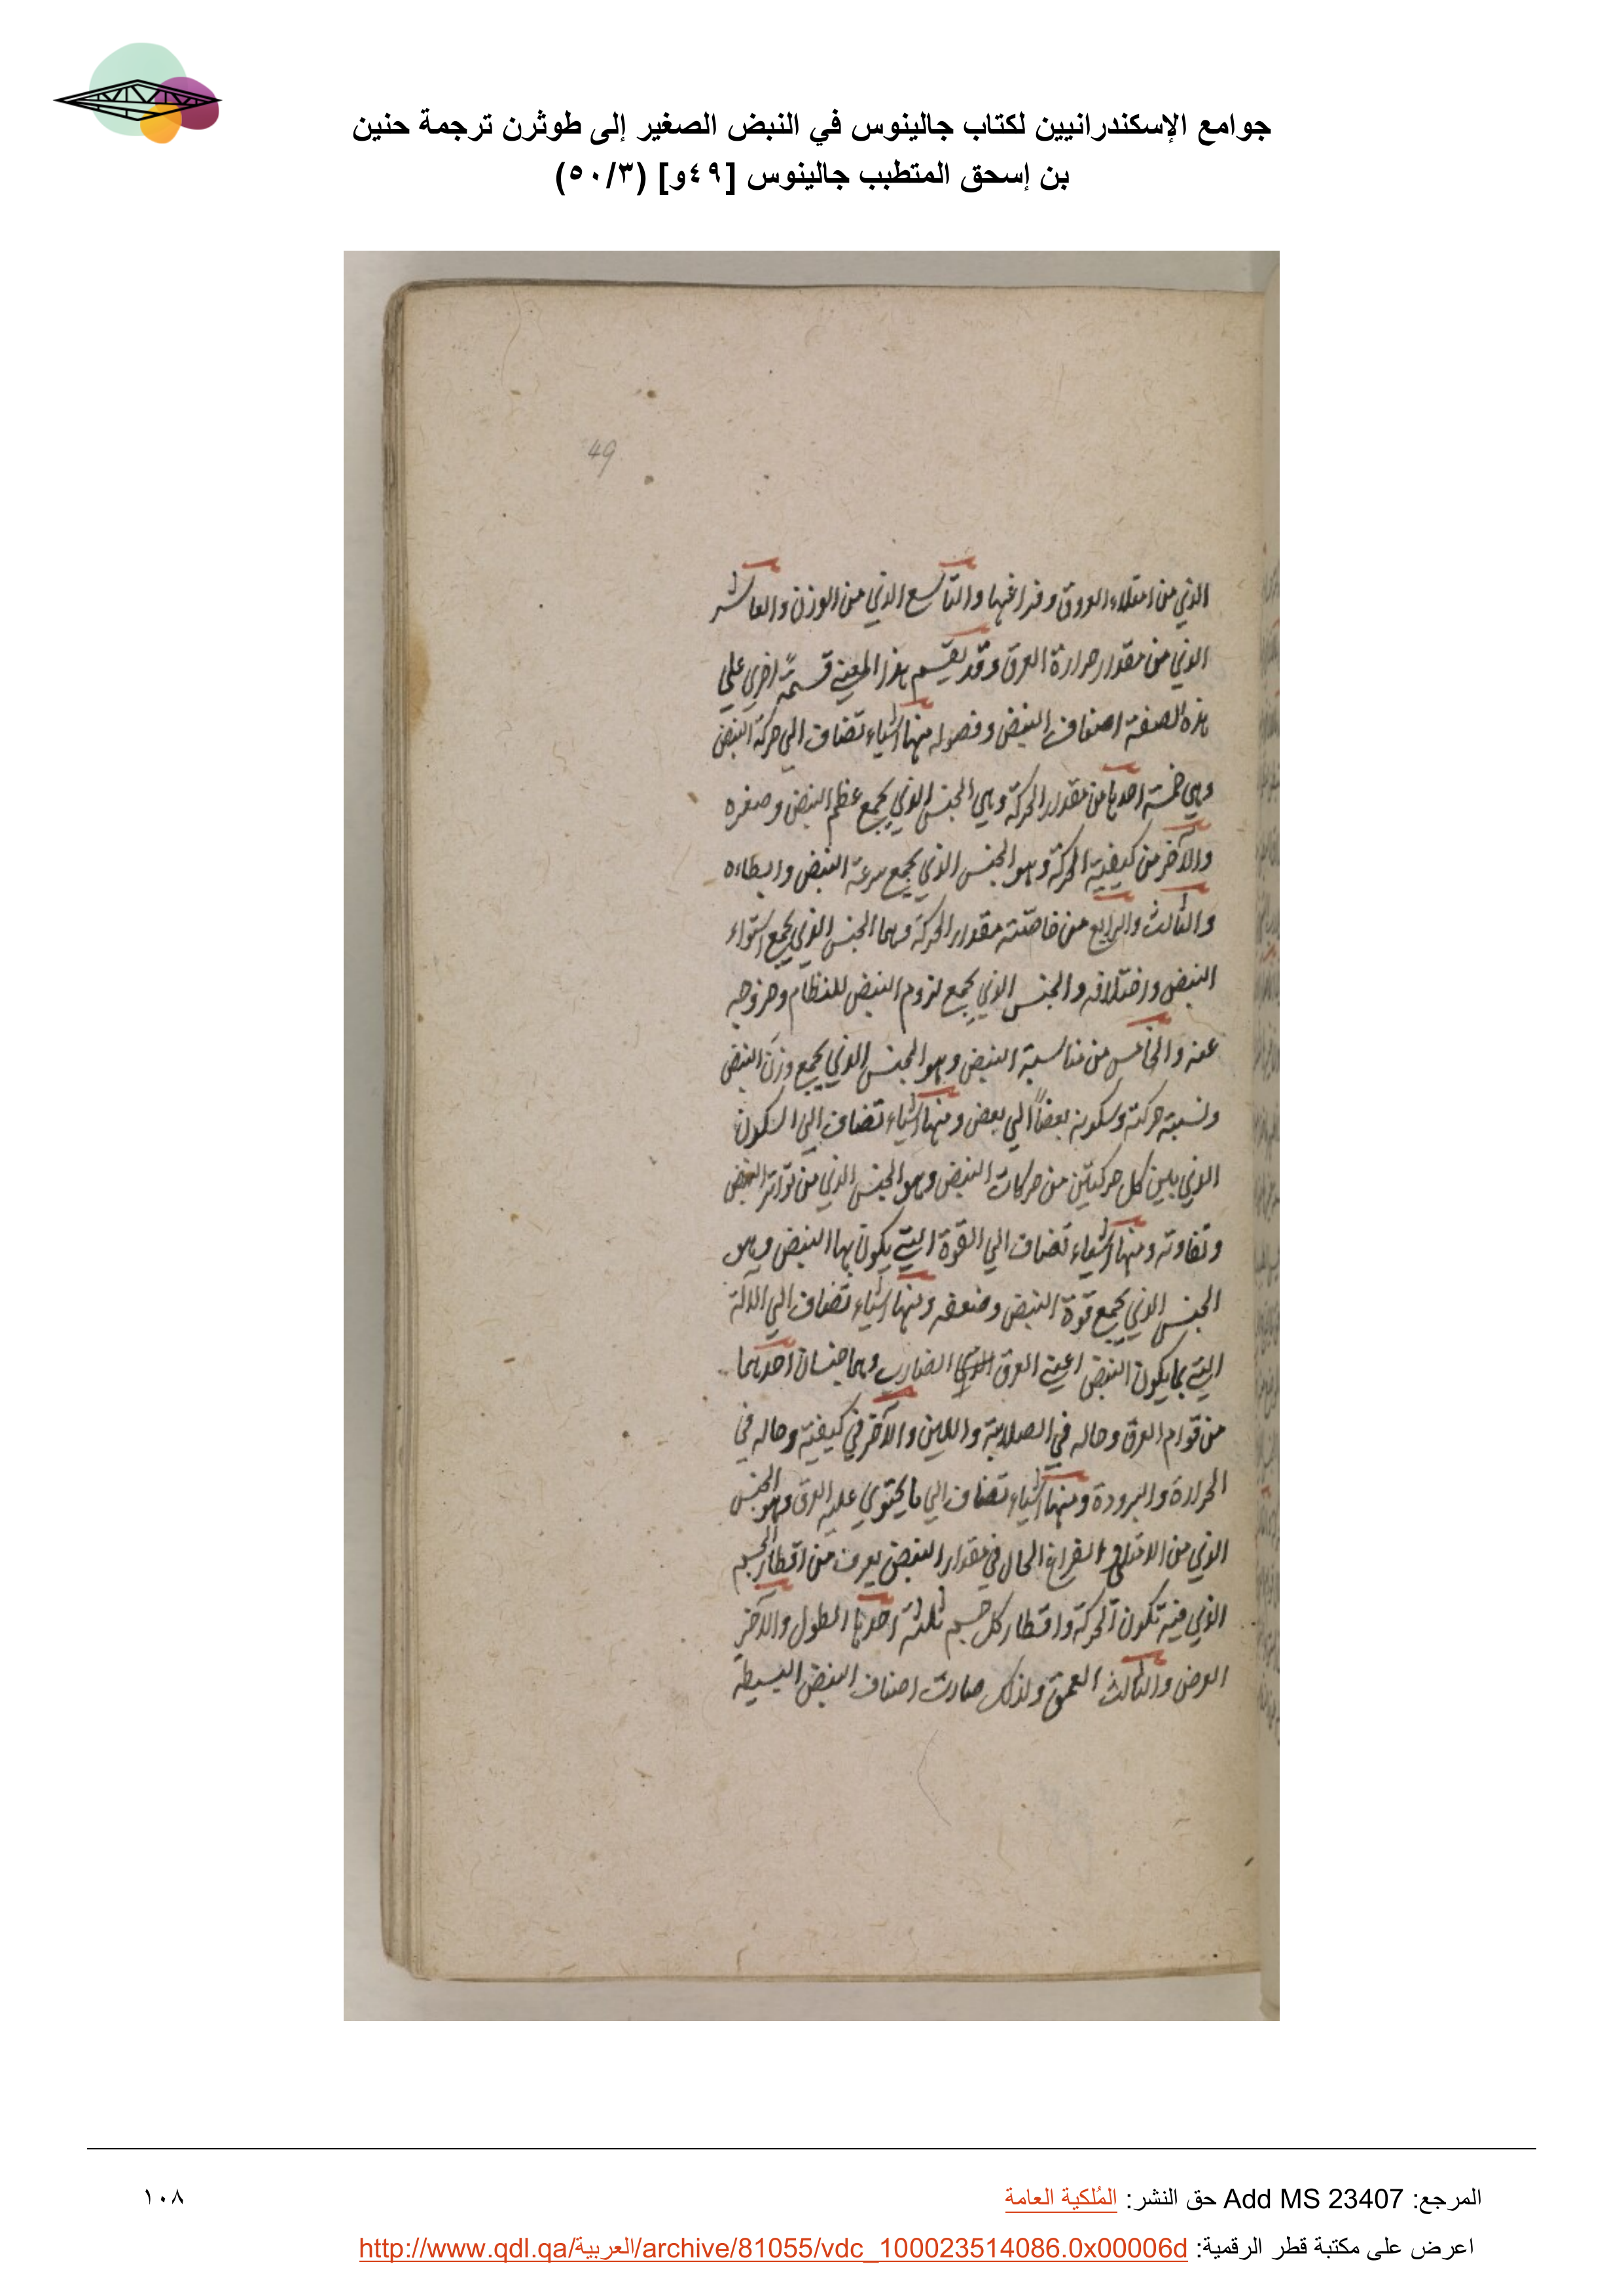 جوامع الإسكندرانيين لكتاب جالينوس في النبض الصغير إلى طوثرن ترجمة حنين
بن إسحق المتطبب جالينوس [٤٩و] (٥٠/٣)
49
الذي من امتلاء العروق وفراغها والتاسع الذي من الوزن والعاشر
الذي من مقدار حرارة العرق وقد يقسم هذا المعني قسمةً اخري علي
هذه الصفة اصناف النبض وفصوله منها اشياء تضاف الي حركة النبض
وهي خمسة احدها من مقدار الحركة وهي الجنس الذي يجمع عظم النبض وصغره
والآخر من كيفية الحركة وهو الجنس الذي يجمع سرعة النبض وابطاءه
والثالث والرابع من خاصّته مقدار الحركة وهما الجنس الذي يجمع استواء
النبض واختلافه والجنس الذي يجمع لزوم النبض للنظام وخروجه
عنه والخامس من مناسبة النبض وهو الجنس الذي يجمع وزن النبض
ونسبة حركته وسكونه بعضاً الي بعض ومنها اشياء تضاف الي السكون
الذي بين كل حركتين من حركات النبض وهو الجنس الذي من تواتر النبض
وتفاوته ومنها اشياء تضاف الي القوة التي يكون بها النبض وهو
الجنس الذي يجمع قوة النبض وضعفه ومنها اشياء تضاف الي الآلة
التي بها يكون النبض اعني العرق الضارب وهما جنسان احدهما
من قوام العرق وحاله في الصلابة واللين والآخر في كيفية وحاله في
الحرارة والبرودة ومنها اشياء تضاف الي ما يحتوي عليه العرق وهو الجنس
الذي من الامتلاء الفراغ الحال في مقدار النبض يعرف من اقطار الجسم
الذي فيه تكون الحركة واقطار كل جسم ثلثة احدها الطول والآخر
العرض والثالث العمق ولذلك صارت اصناف النبض البسيطة
المرجع: Add MS 23407 حق النشر: المُلكية العامة
١٠٨
اعرض على مكتبة قطر الرقمية: http://www.qdl.qa/العربية/archive/81055/vdc_100023514086.0x00006d